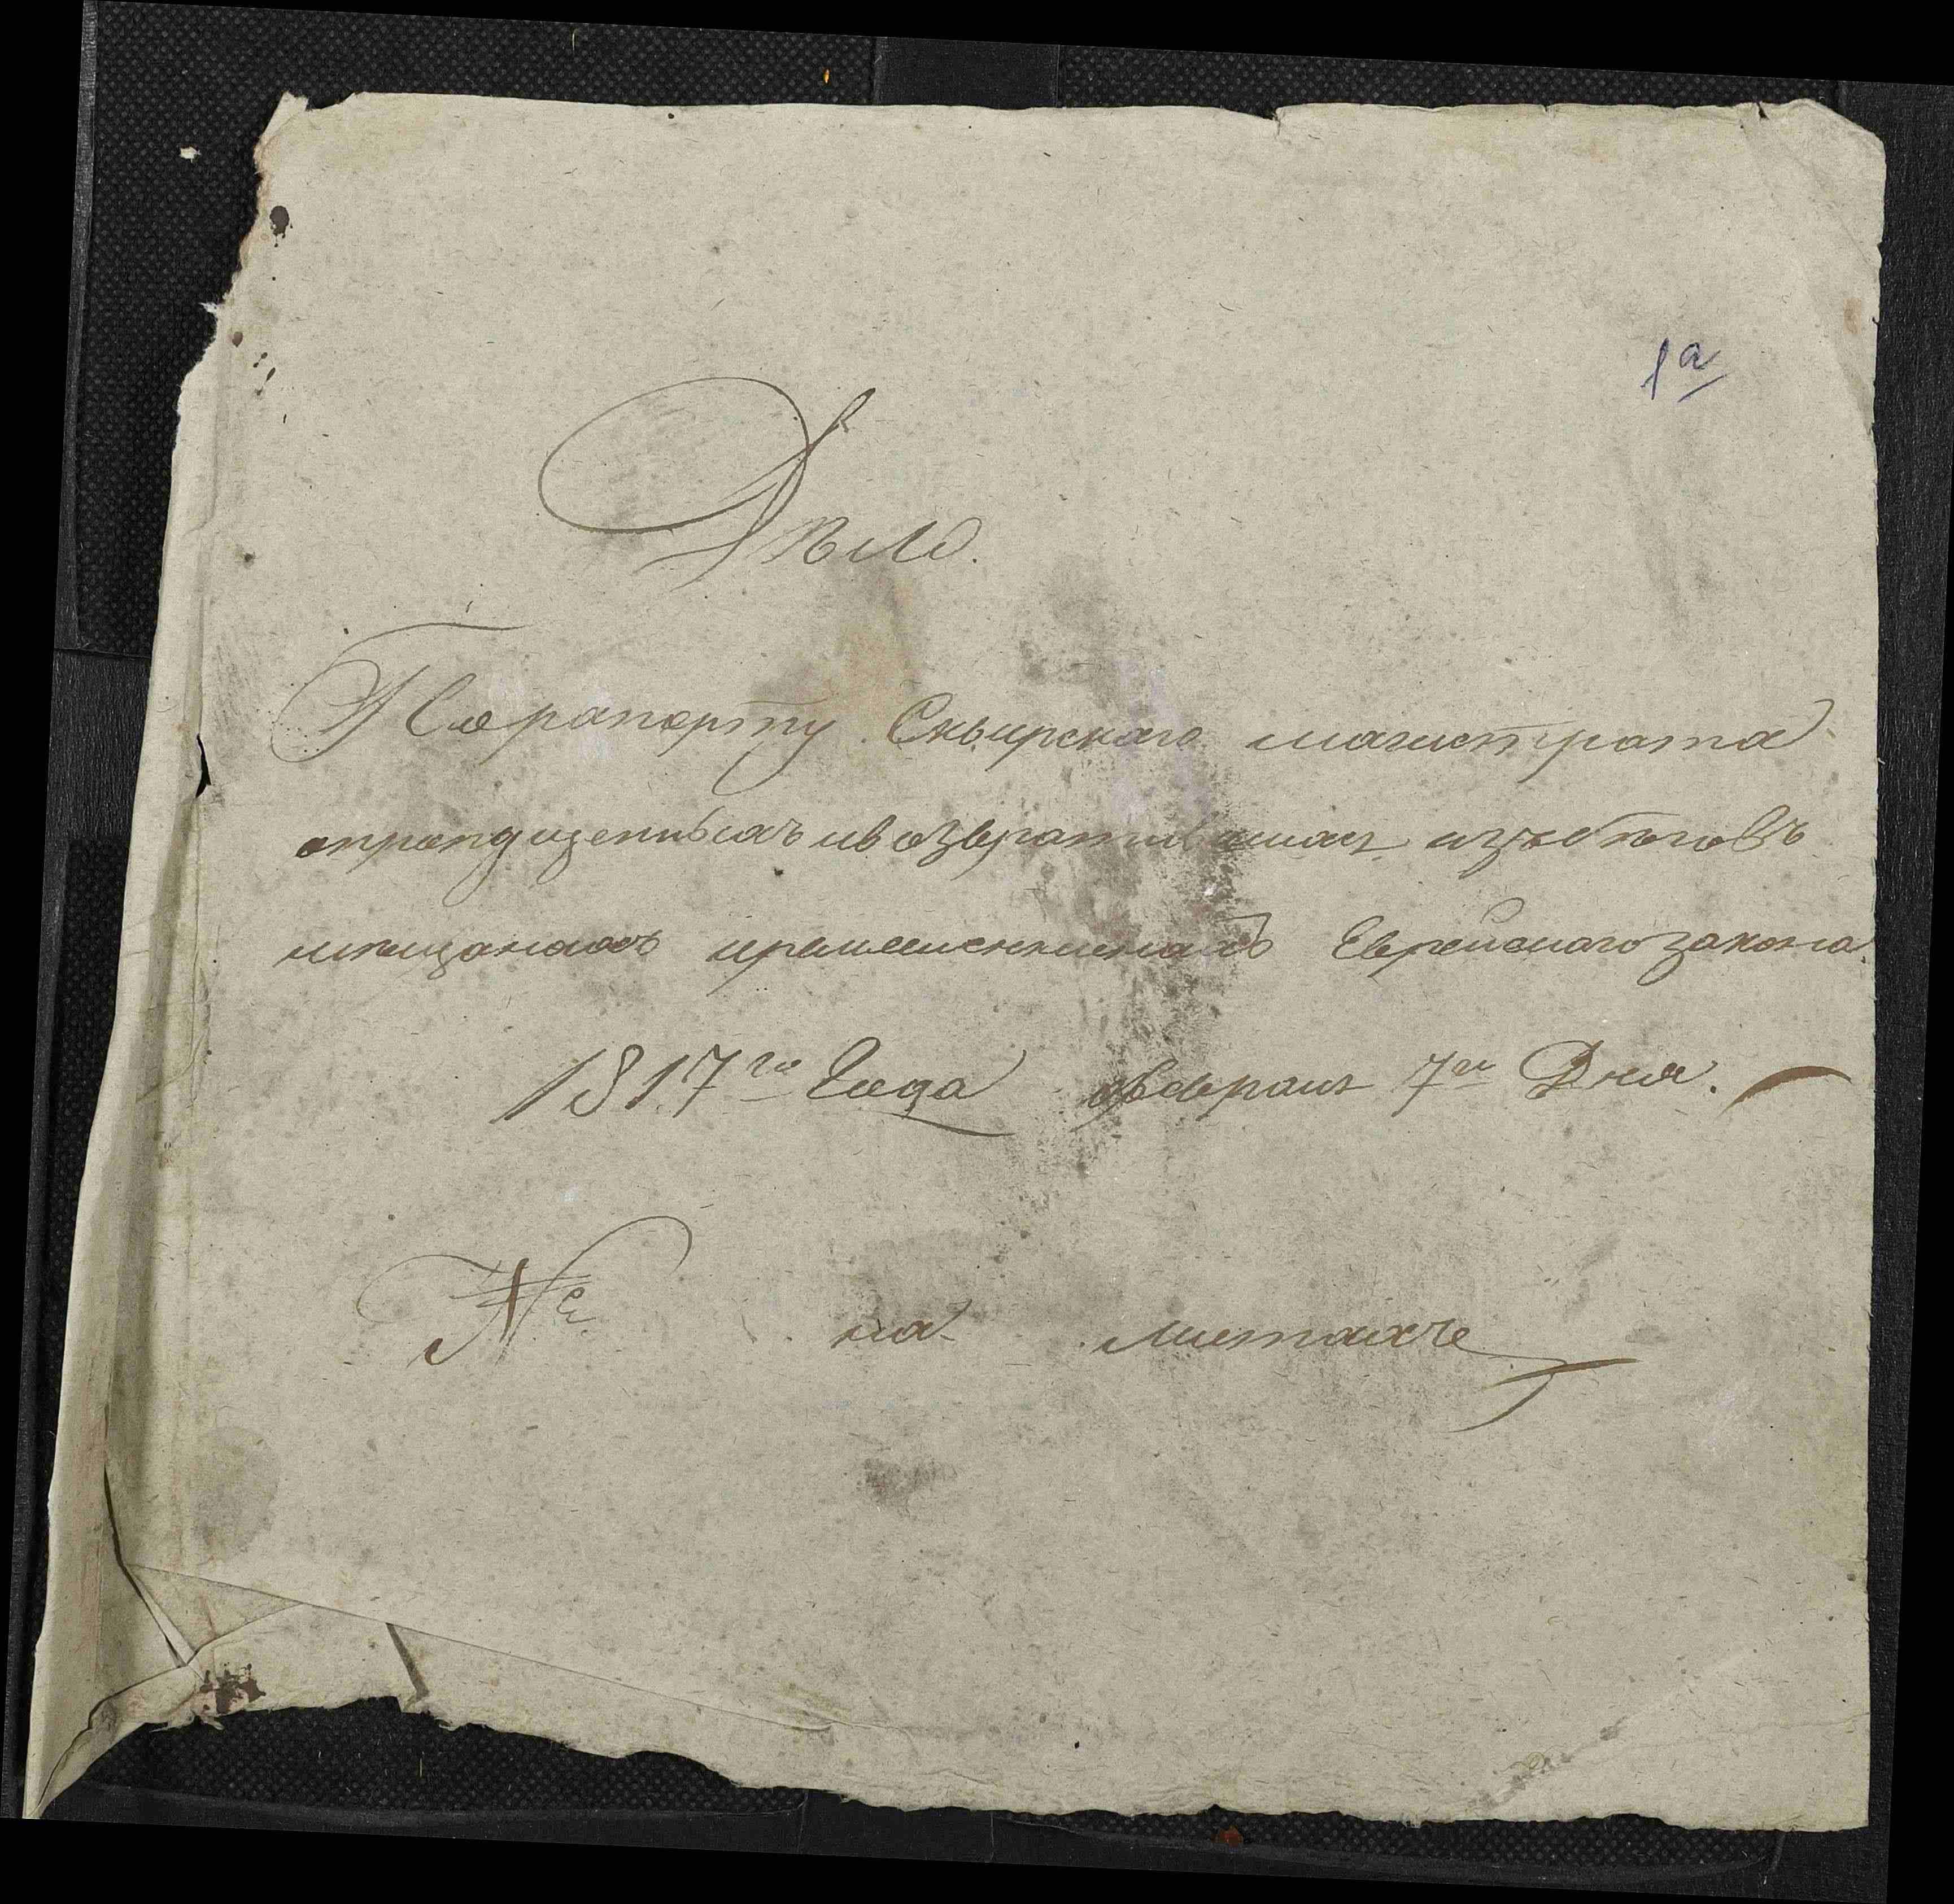 1а
Дѣло.
По рапорту Сквирскаго магистрата
опропущенныхъ ивозвратившихся изъ беговъ
мещанахъ Еврейскаго закона.
1817го Года февраля 7го Дня.
№ на листахъ